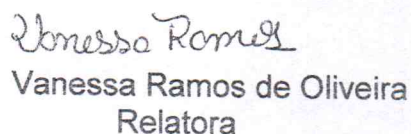 Vanessa Ramos
Vanessa Ramos de Oliveira
Relatora